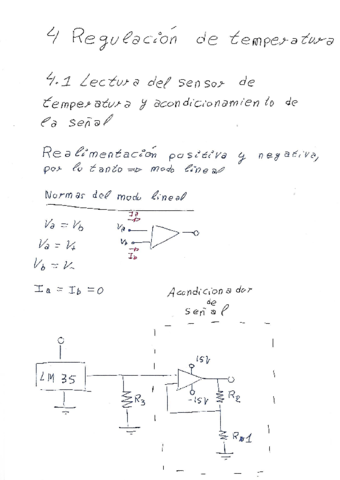 4 Regulación de temperatura
4.1 Lectura del sensor de
temperatura y acondicionamiento de
la señal
Realimentación positiva y negativa,
por lo tanto => modo lineal
Normas del modo lineal
Va = Vb
Va = V+
Vb = V-
Ia = Ib = 0
Ia
Va
Vb
Ib
Acondicionador
de
señal
LM 35
R3
15V
-15V
R2
R1